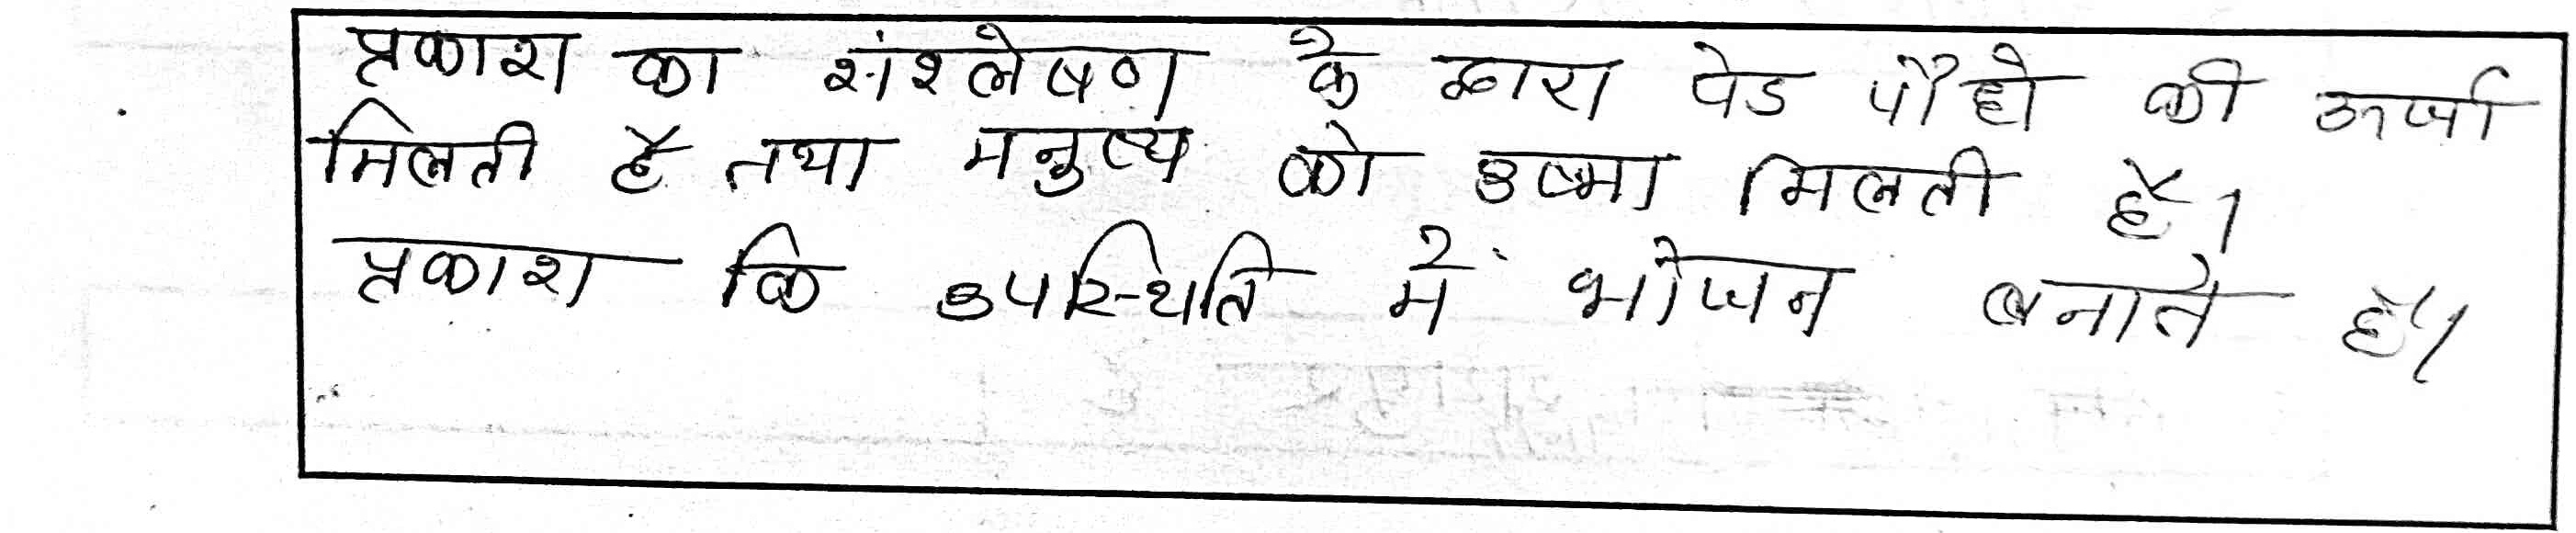 प्रकाश का संश्लेषण के द्वारा पेड पौधो की ऊर्जा
मिलती है तथा मनुष्य को उष्मा मिलती है।
प्रकाश कि उपस्थिति में भोजन बनाते है।